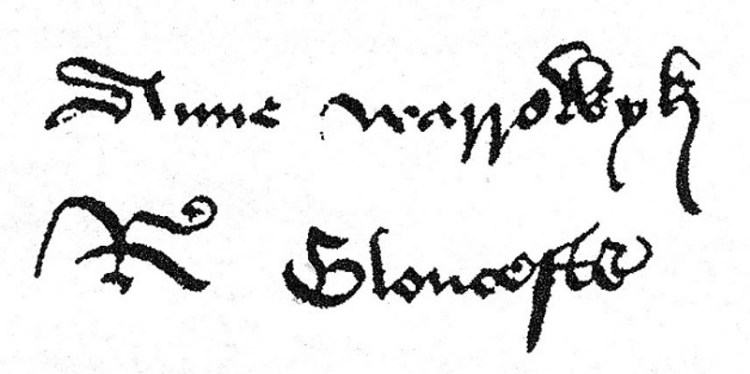 Anne warrewyk
R Gloucestre